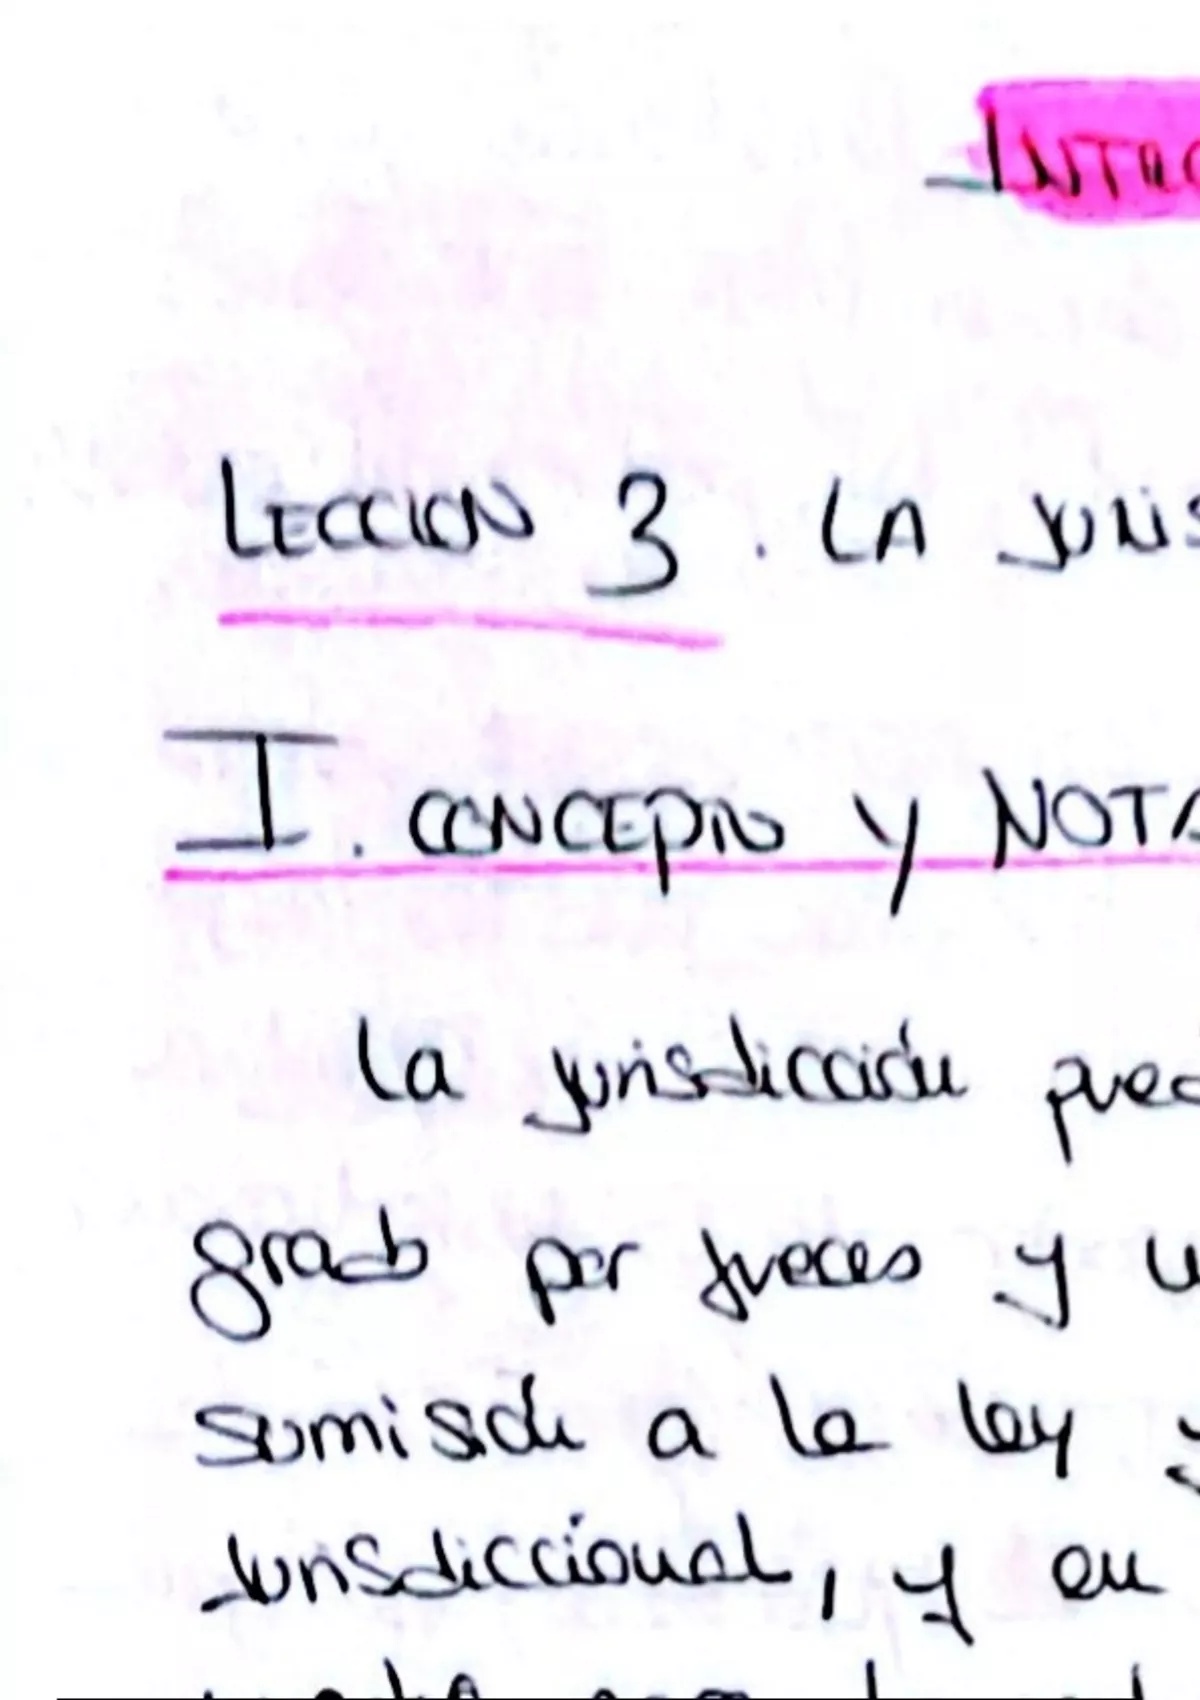 INTRO
LECCION 3. LA JURIS
I. CONCEPTO Y NOTA
La jurisdicción pued
grado por jueces y
sumisión a la ley y
Jurisdiccional, y en